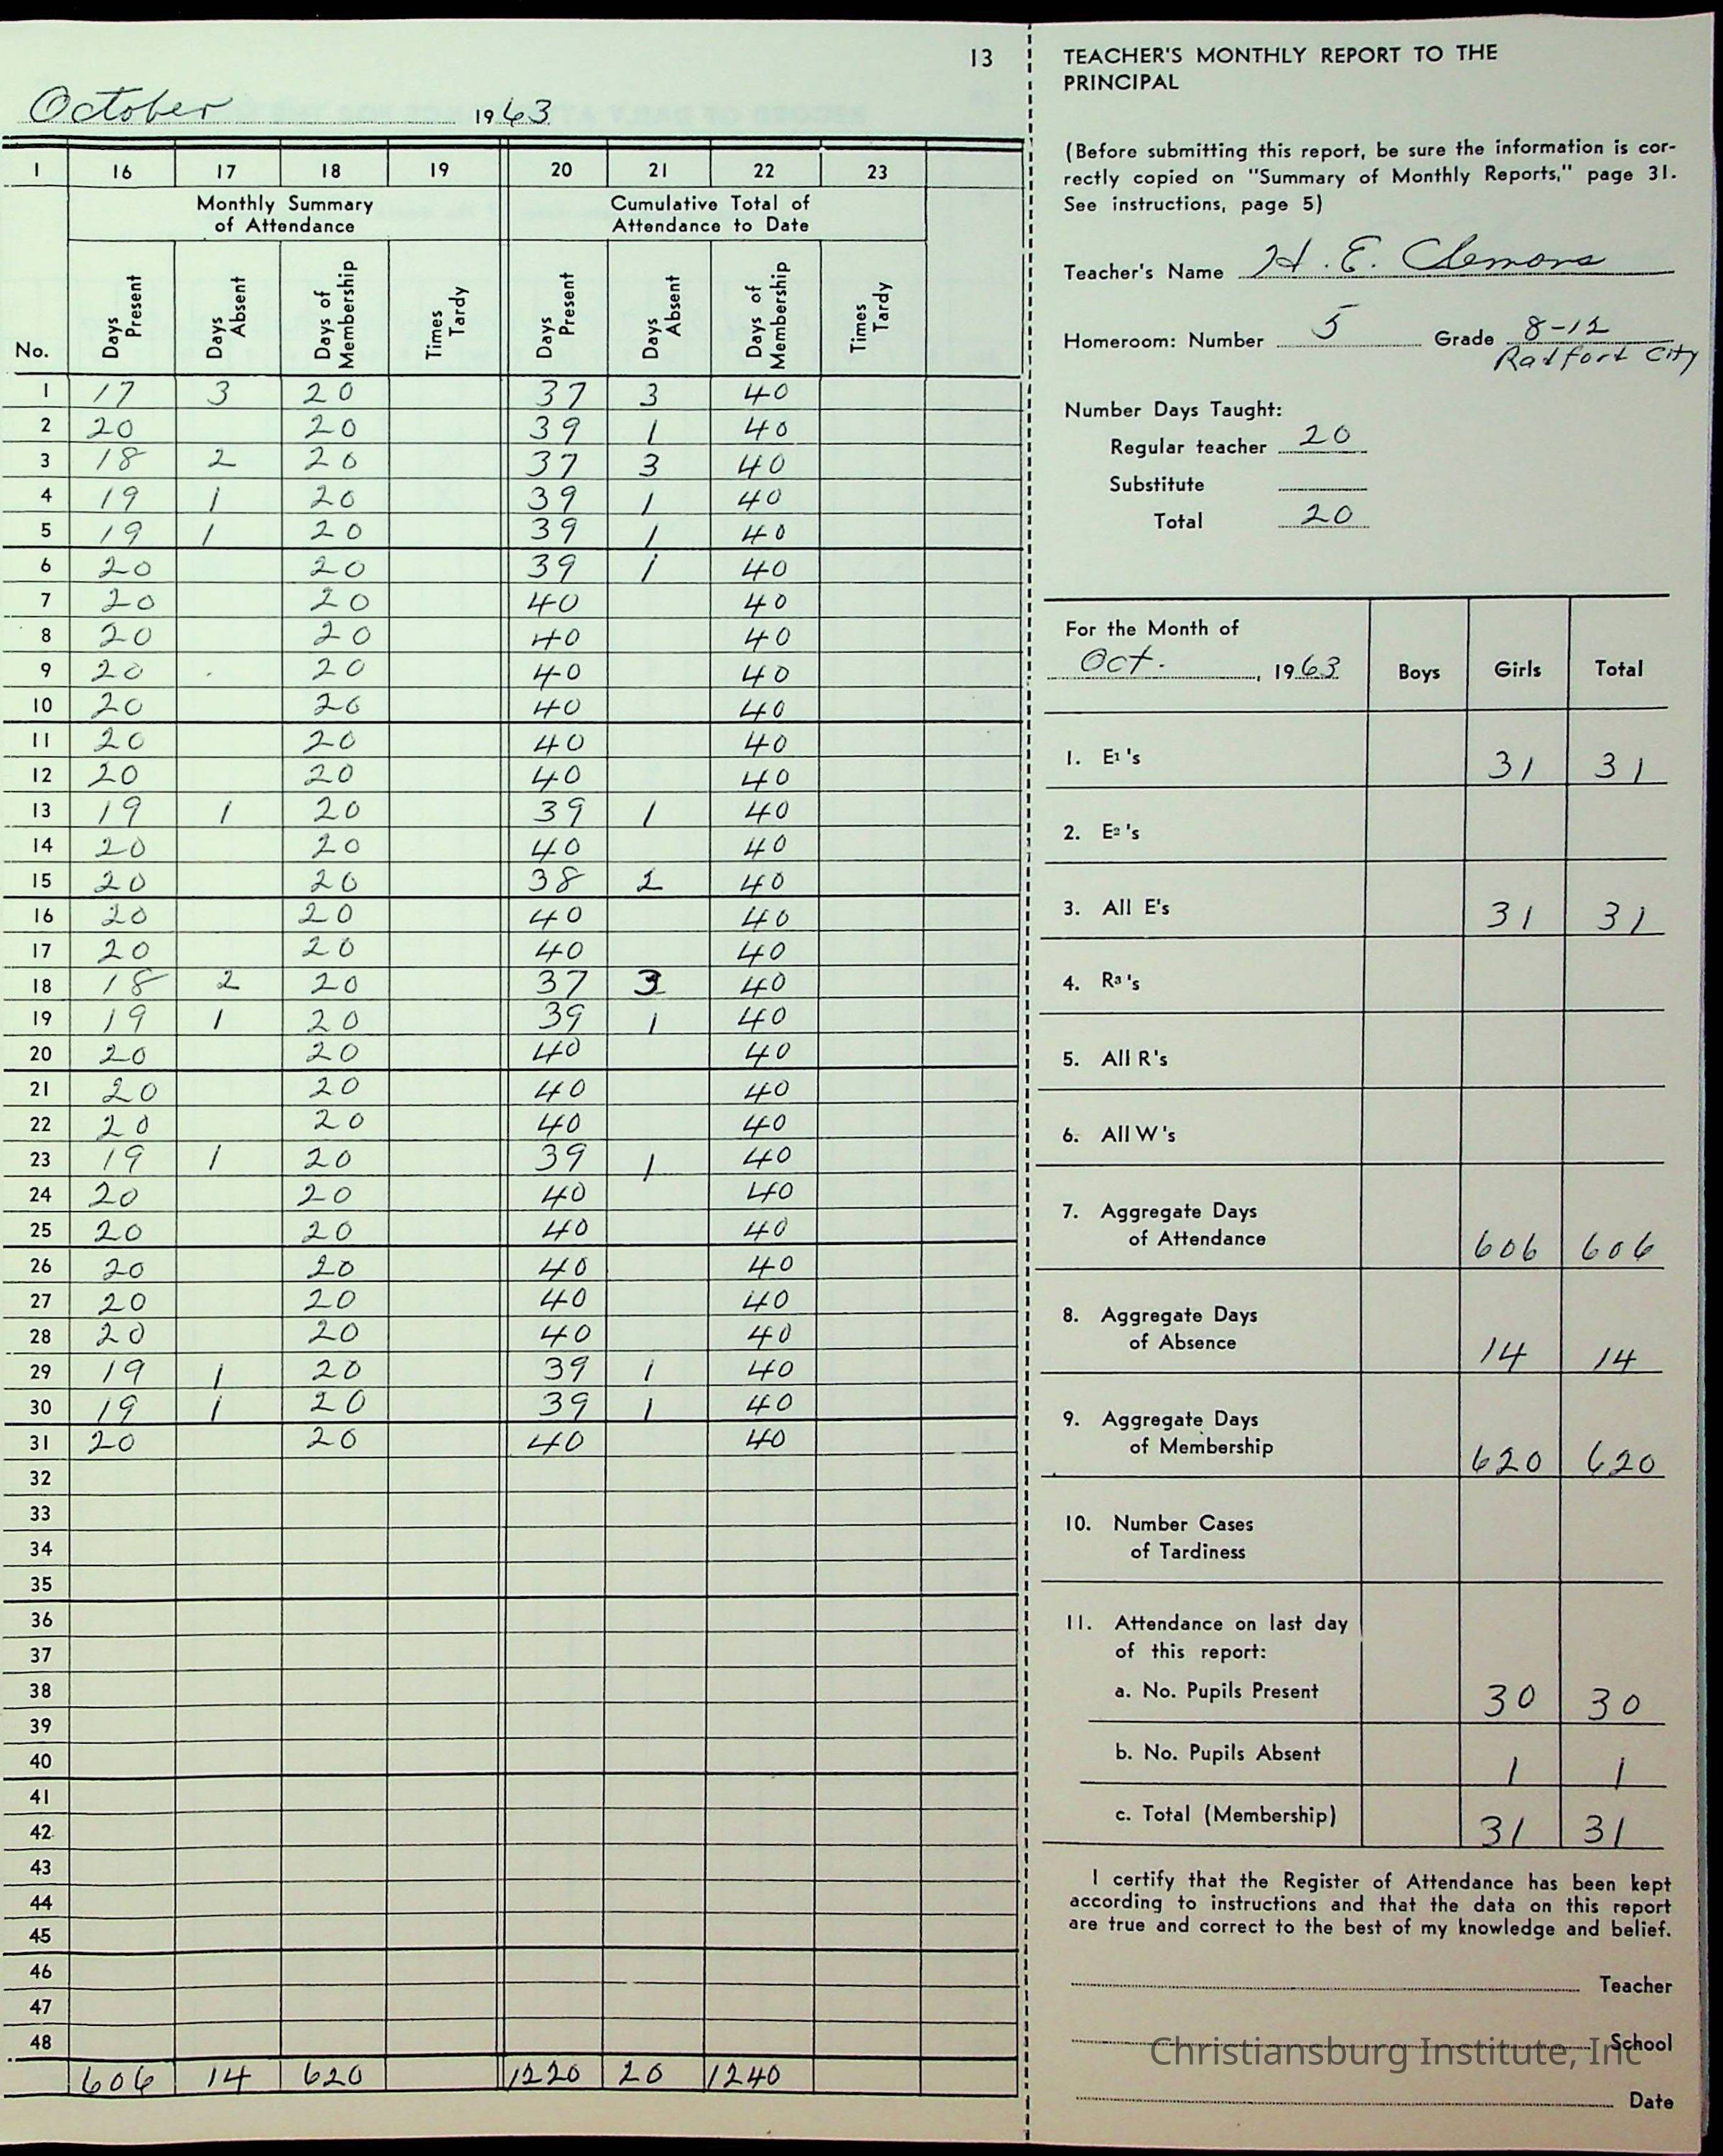 13
October 1963
1 16 17 18 19 20 21 22 23
Monthly Summary of Attendance Cumulative Total of Attendance to Date
No. Days Present Days Absent Days of Membership Times Tardy Days Present Days Absent Days of Membership Times Tardy
1 17 3 20 37 3 40
2 20 20 39 1 40
3 18 2 20 37 3 40
4 19 1 20 39 1 40
5 19 1 20 39 1 40
6 20 20 39 1 40
7 20 20 40 40
8 20 20 40 40
9 20 20 40 40
10 20 20 40 40
11 20 20 40 40
12 20 20 40 40
13 19 1 20 39 1 40
14 20 20 40 40
15 20 20 38 2 40
16 20 20 40 40
17 20 20 40 40
18 18 2 20 37 3 40
19 19 1 20 39 1 40
20 20 20 40 40
21 20 20 40 40
22 20 20 40 40
23 19 1 20 39 1 40
24 20 20 40 40
25 20 20 40 40
26 20 20 40 40
27 20 20 40 40
28 20 20 40 40
29 19 1 20 39 1 40
30 19 1 20 39 1 40
31 20 20 40 40
32
33
34
35
36
37
38
39
40
41
42
43
44
45
46
47
48
606 14 620 1220 20 1240
TEACHER'S MONTHLY REPORT TO THE
PRINCIPAL
(Before submitting this report, be sure the information is cor-
rectly copied on "Summary of Monthly Reports," page 31.
See instructions, page 5)
Teacher's Name H. E. Clemons
Homeroom: Number 5 Grade 8-12
Radfort City
Number Days Taught:
Regular teacher 20
Substitute
Total 20
For the Month of
Oct., 1963 Boys Girls Total
1. E1's 31 31
2. E2's
3. All E's 31 31
4. R3's
5. All R's
6. All W's
7. Aggregate Days
of Attendance 606 606
8. Aggregate Days
of Absence 14 14
9. Aggregate Days
of Membership 620 620
10. Number Cases
of Tardiness
11. Attendance on last day
of this report:
a. No. Pupils Present 30 30
b. No. Pupils Absent 1 1
c. Total (Membership) 31 31
I certify that the Register of Attendance has been kept
according to instructions and that the data on this report
are true and correct to the best of my knowledge and belief.
Teacher
School
Christiansburg Institute, Inc
Date